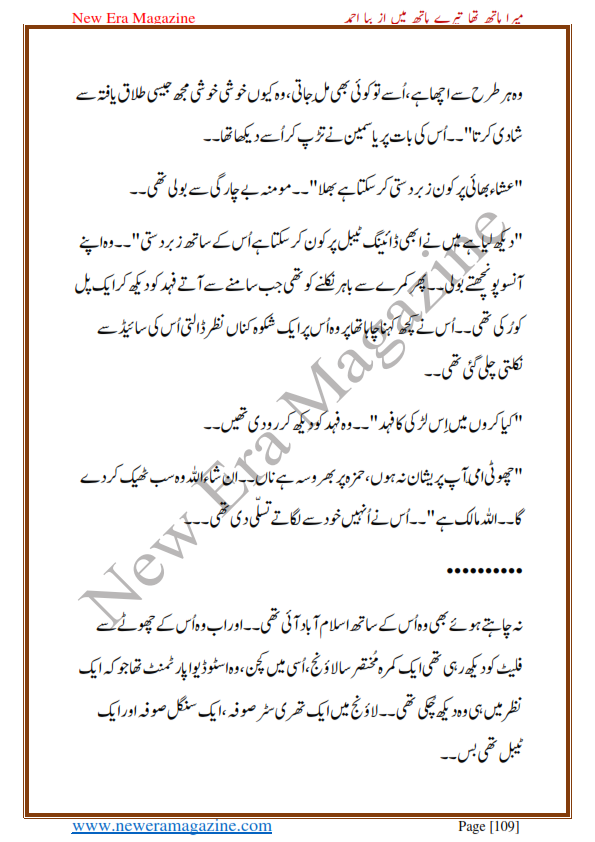 New Era Magazine
میرا ہاتھ تھا تیرے ہاتھ میں از ببا احمد
وہ ہر طرح سے اچھا ہے، اُسے تو کوئی بھی مل جاتی، وہ کیوں خوشی خوشی مجھ جیسی طلاق یافتہ سے
شادی کرتا"۔۔ اُس کی بات پر یاسمین نے تڑپ کر اُسے دیکھا تھا۔۔
"عشاء بھائی پر کون زبردستی کر سکتا ہے بھلا"۔۔ مومنہ بے چارگی سے بولی تھی۔۔
"دیکھ لیا ہے میں نے ابھی ڈائینگ ٹیبل پر کون کر سکتا ہے اُس کے ساتھ زبردستی"۔۔ وہ اپنے
آنسو پونچھتے بولی۔۔ پھر کمرے سے باہر نکلنے کو تھی جب سامنے سے آتے فہد کو دیکھ کر ایک پل
کو رُکی تھی۔۔ اُس نے کچھ کہنا چاہا تھا پر وہ اُس پر ایک شکوہ کناں نظر ڈالتی اُس کی سائیڈ سے
نکلتی چلی گئی تھی۔۔
"کیا کروں میں اِس لڑکی کا فہد"۔۔ وہ فہد کو دیکھ کر رو دی تھیں۔۔
"چھوٹی امی آپ پریشان نہ ہوں، حمزہ پر بھروسہ ہے ناں۔۔ ان شاءاللہ وہ سب ٹھیک کر دے
گا۔۔ اللہ مالک ہے"۔۔ اُس نے اُنہیں خود سے لگاتے تسلّی دی تھی۔۔۔
••••••••••
نہ چاہتے ہوئے بھی وہ اُس کے ساتھ اسلام آباد آئی تھی۔۔ اور اب وہ اُس کے چھوٹے سے
فلیٹ کو دیکھ رہی تھی ایک کمرہ مُختصر سا لاؤنج، اُسی میں کچن، وہ اسٹوڈیو اپارٹمنٹ تھا جو کہ ایک
نظر میں ہی وہ دیکھ چُکی تھی۔۔ لاؤنج میں ایک تھری سٹر صوفہ، ایک سنگل صوفہ اور ایک
ٹیبل تھی بس۔۔
New Era Magazine
www.neweramagazine.com
Page [109]